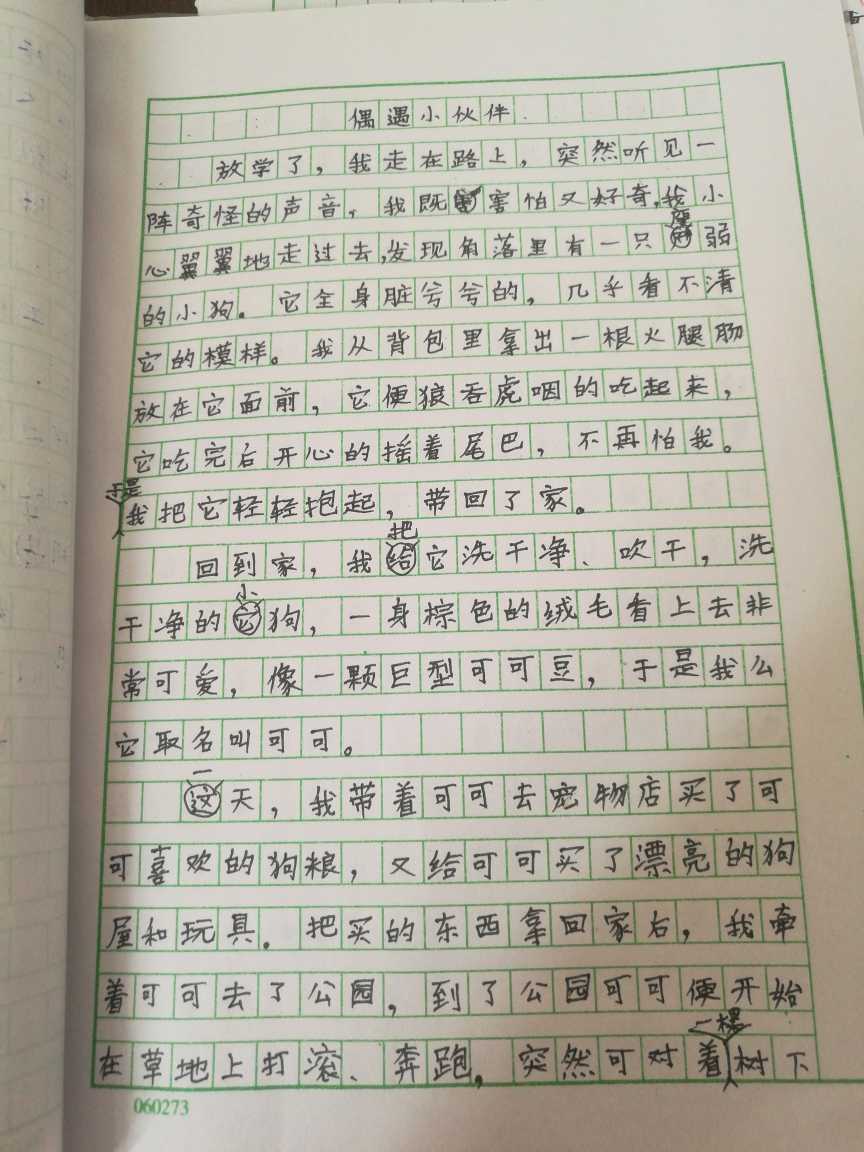 偶遇小伙伴
放学了，我走在路上，突然听见一
阵奇怪的声音，我既害怕又好奇，我小
心翼翼地走过去，发现角落里有一只弱
的小狗。它全身脏兮兮的，几乎看不清
它的模样。我从背包里拿出一根火腿肠
放在它面前，它便狼吞虎咽的吃起来，
它吃完后开心的摇着尾巴，不再怕我。
于是我把它轻轻抱起，带回了家。
回到家，我把它洗干净、吹干，洗
干净的小狗，一身棕色的绒毛看上去非
常可爱，像一颗巨型可可豆，于是我么
它取名叫可可。
一天，我带着可可去宠物店买了可
可喜欢的狗粮，又给可可买了漂亮的狗
屋和玩具。把买的东西拿回家后，我牵
着可可去了公园，到了公园可可便开始
在草地上打滚、奔跑，突然可对着一棵树下
060273